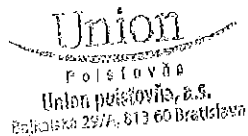 Union
poisťovňa
Union poisťovňa, a.s.
29/A, 813 60 Bratislava